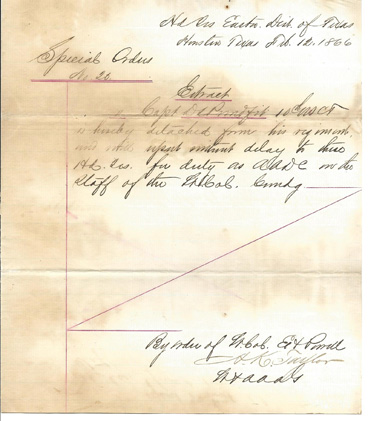 Hd Qrs Easton Dist of Texas
Houston Texas Feb. 12. 1866
Special Orders
No. 20.
Extract
Capt 10 USCT
is hereby detached from his regiment
and will report without delay to these
Hd. Qrs. for duty as AADC on the
Staff of the Lt Col. Comdg
By order of Lt. Col.
A. K. Taylor